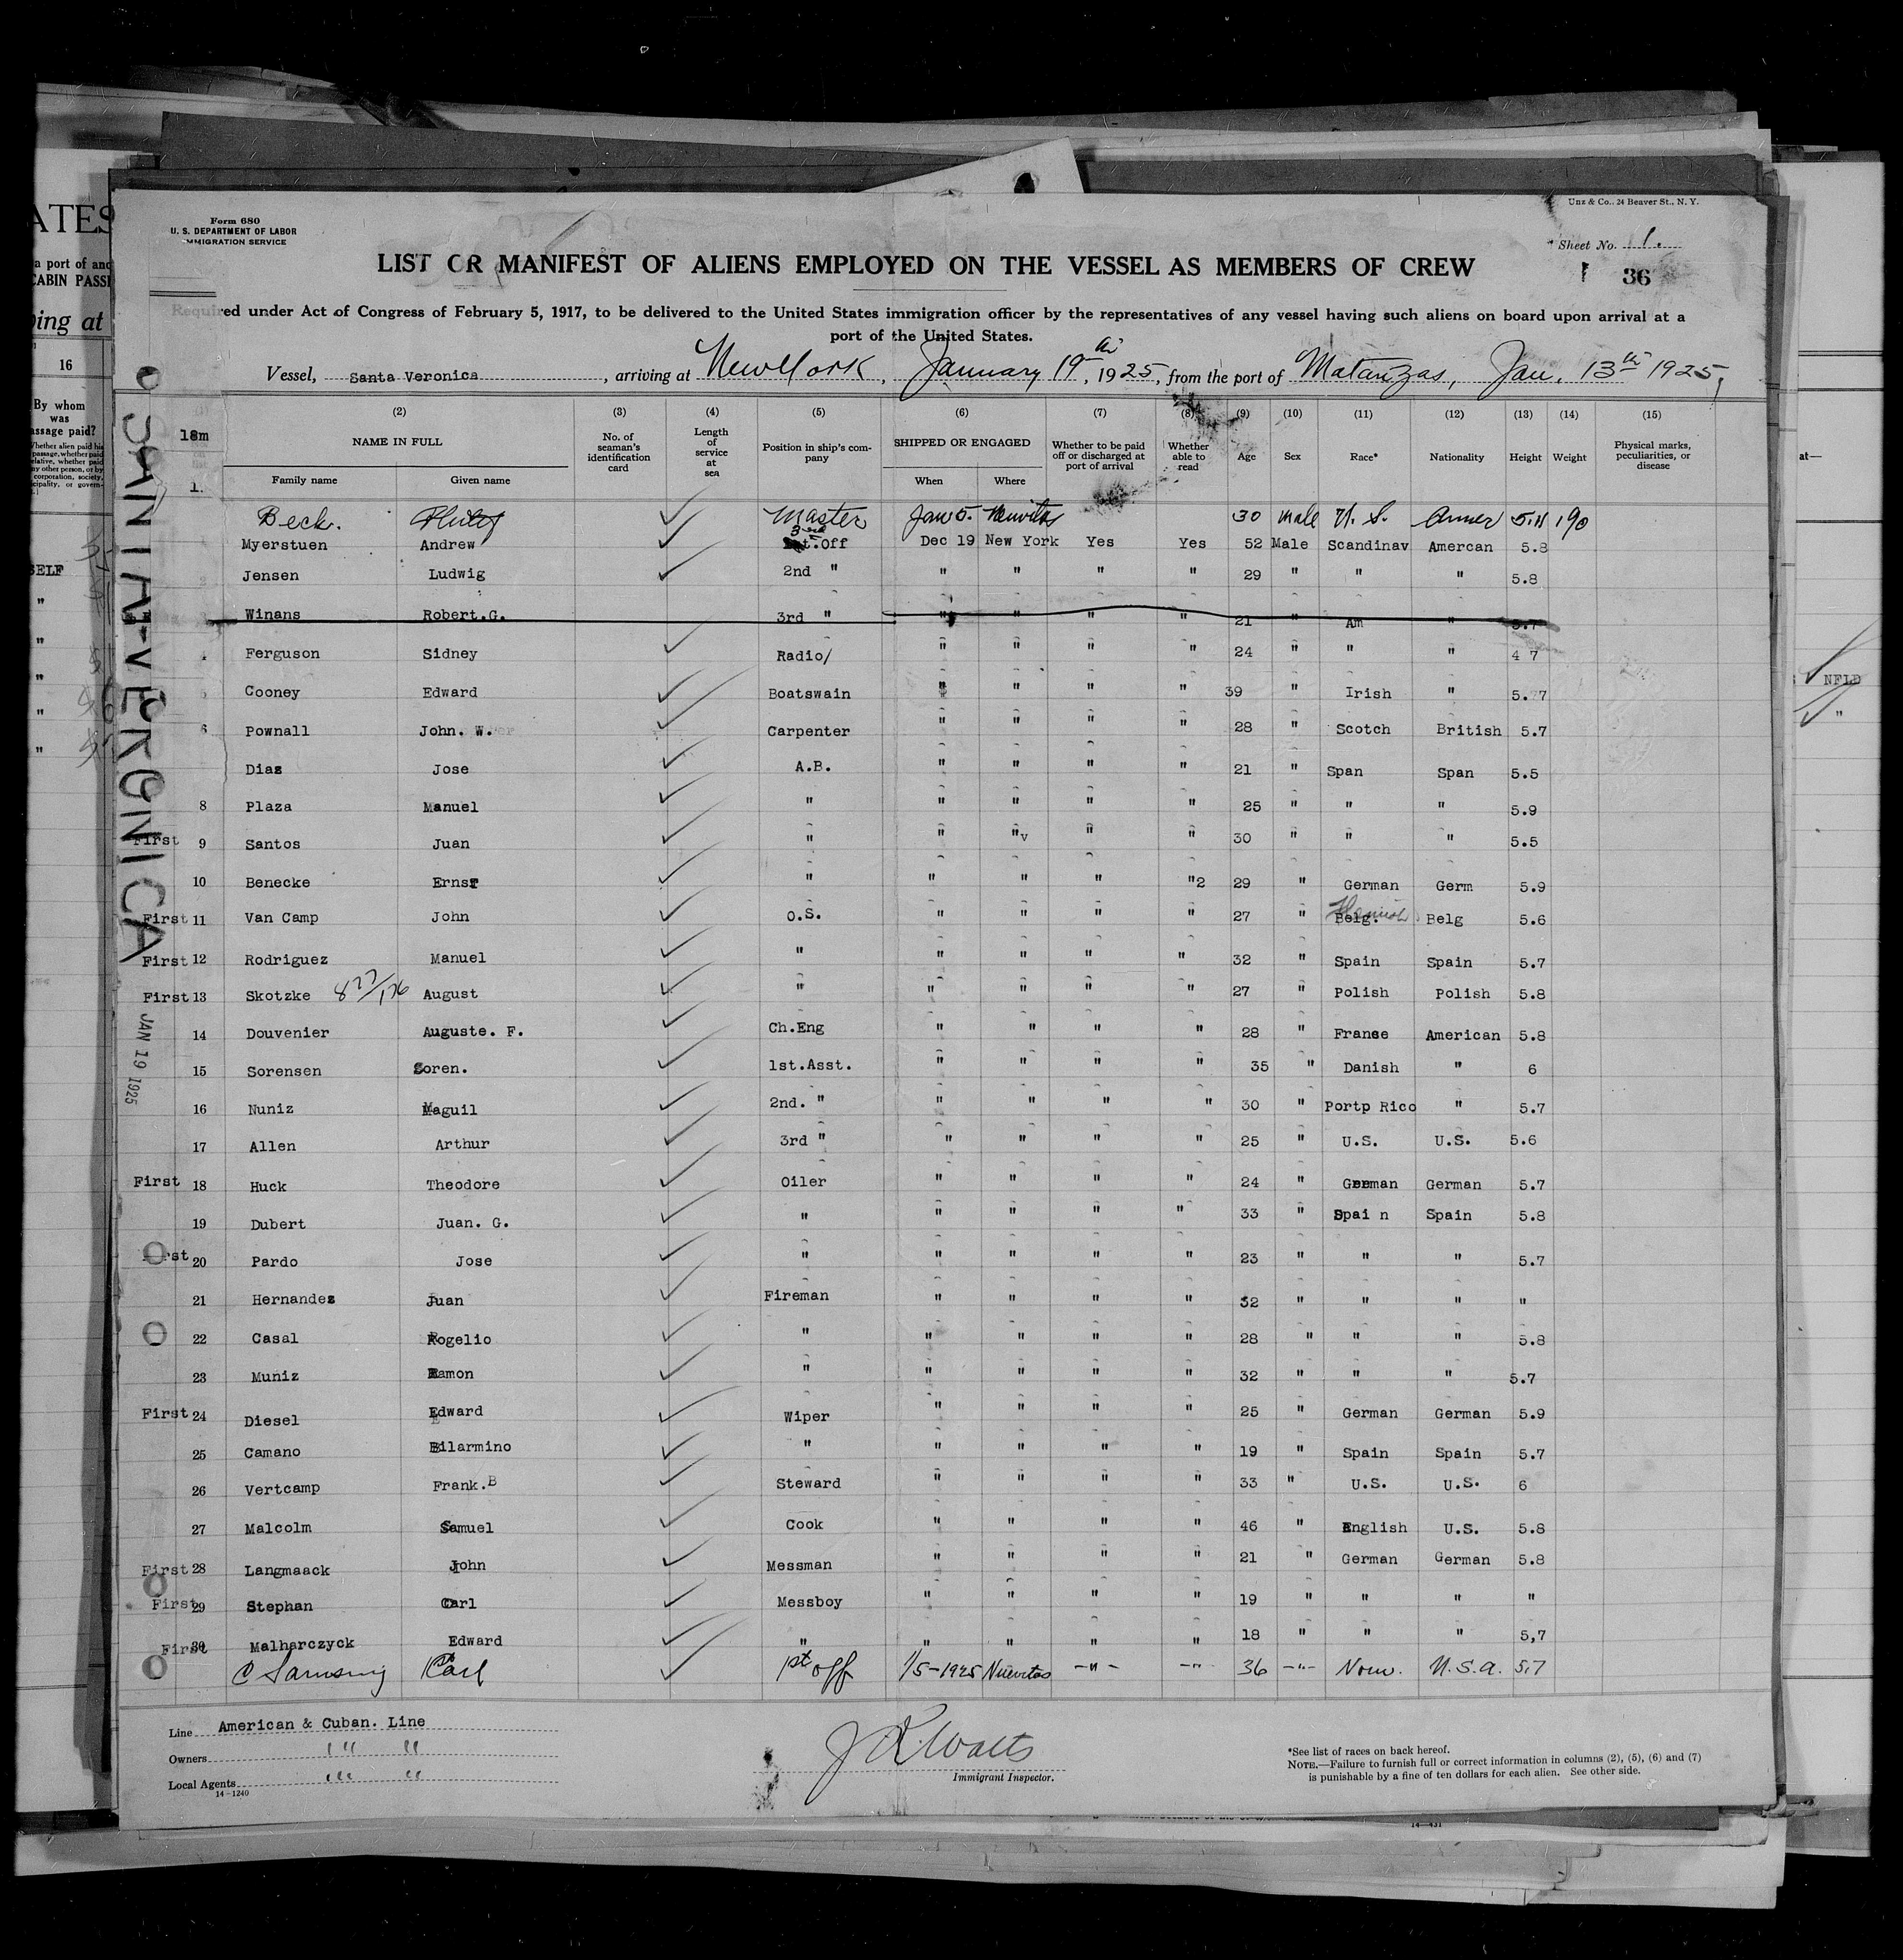 Form 680
U. S. DEPARTMENT OF LABOR
IMMIGRATION SERVICE
Unz & Co., 24 Beaver St., N. Y.
* Sheet No. 1.
36
LIST OR MANIFEST OF ALIENS EMPLOYED ON THE VESSEL AS MEMBERS OF CREW
Required under Act of Congress of February 5, 1917, to be delivered to the United States immigration officer by the representatives of any vessel having such aliens on board upon arrival at a
port of the United States.
Vessel, Santa Veronica, arriving at New York, January 19th, 1925, from the port of Matanzas, Jan. 13th 1925,
(1) (2) (3) (4) (5) (6) (7) (8) (9) (10) (11) (12) (13) (14) (15)
18m
NAME IN FULL
Family name Given name
No. of seaman's identification card
Length of service at sea
Position in ship's company
SHIPPED OR ENGAGED
When Where
Whether to be paid off or discharged at port of arrival
Whether able to read
Age Sex Race* Nationality Height Weight
Physical marks, peculiarities, or disease
1.
Beck. Philip Master Jan 5. Nuevitas 30 male U. S. Amer 5.11 190
Myerstuen Andrew 3rd Off Dec 19 New York Yes Yes 52 Male Scandinav Amercan 5.8
2 Jensen Ludwig 2nd " " " " " 29 " " " 5.8
Winans Robert.G. 3rd " " " " " 21 " Am " 5.7
Ferguson Sidney Radio/ " " " " 24 " " " 4 7
5 Cooney Edward Boatswain " " " " 39 " Irish " 5.77
6 Pownall John. W. Carpenter " " " " 28 " Scotch British 5.7
Diaz Jose A.B. " " " " 21 " Span Span 5.5
8 Plaza Manuel " " " " " 25 " " " 5.9
First 9 Santos Juan " " "v " " 30 " " " 5.5
10 Benecke Ernst " " " " "2 29 " German Germ 5.9
First 11 Van Camp John O.S. " " " " 27 " Belg. Flemish Belg 5.6
First 12 Rodriguez Manuel " " " " " 32 " Spain Spain 5.7
First 13 Skotzke 877/176 August " " " " " 27 " Polish Polish 5.8
14 Douvenier Auguste. F. Ch.Eng " " " " 28 " France American 5.8
15 Sorensen Soren. 1st.Asst. " " " " 35 " Danish " 6
16 Nuniz Maguil 2nd. " " " " " 30 " Portp Rico " 5.7
17 Allen Arthur 3rd " " " " " 25 " U.S. U.S. 5.6
First 18 Huck Theodore Oiler " " " " 24 " German German 5.7
19 Dubert Juan. G. " " " " " 33 " Spai n Spain 5.8
First 20 Pardo Jose " " " " " 23 " " " 5.7
21 Hernandez Juan Fireman " " " " 32 " " " "
22 Casal Rogelio " " " " " 28 " " " 5.8
23 Muniz Ramon " " " " " 32 " " " 5.7
First 24 Diesel Edward Wiper " " " " 25 " German German 5.9
25 Camano Bilarmino " " " " " 19 " Spain Spain 5.7
26 Vertcamp Frank.B Steward " " " " 33 " U.S. U.S. 6
27 Malcolm Samuel Cook " " " " 46 " English U.S. 5.8
First 28 Langmaack John Messman " " " " 21 " German German 5.8
First 29 Stephan Carl Messboy " " " " 19 " " " "
First 30 Malharczyck Edward " " " " " 18 " " " 5,7
Carl 1st off 1/5-1925 Nuevitas -"- -"- 36 -"- Norw. U.S.A. 5,7
SANTA-VERONICA
JAN 19 1925
Line American & Cuban. Line
Owners " " "
Local Agents " " "
14-1240
J K. Watts
Immigrant Inspector.
*See list of races on back hereof.
NOTE.—Failure to furnish full or correct information in columns (2), (5), (6) and (7)
is punishable by a fine of ten dollars for each alien. See other side.
ATES
a port of
CABIN PASS
ing at
16
By whom was passage paid?
SELF
at—
NFLD
"
14—431